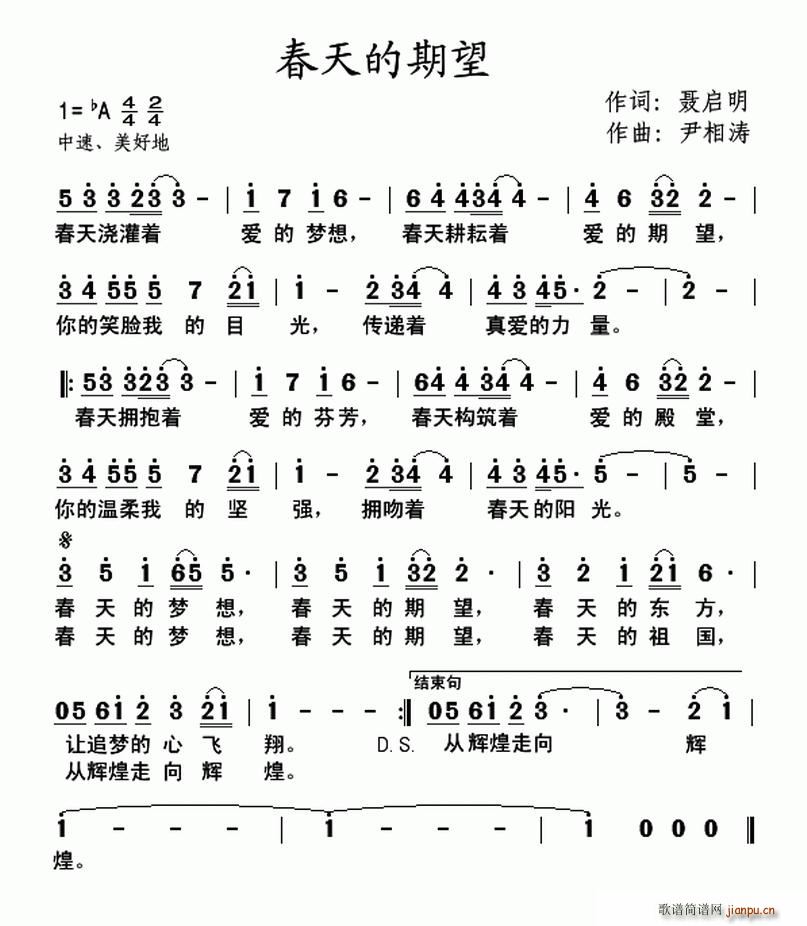 春天的期望
1=♭A 4/4 2/4
作词：聂启明
中速、美好地
作曲：尹相涛
5 3 3 23 3 - | 1 7 1 6 - | 6 4 4 34 4 - | 4 6 32 2 - |
春天浇灌着 爱的梦想，春天耕耘着 爱的期望，
3 4 55 5 7 21 | 1 - 2 34 4 | 4 3 45· 2 - | 2 - |
你的笑脸我的目光，传递着 真爱的力量。
‖: 53 323 3 - | 1 7 1 6 - | 64 4 34 4 - | 4 6 32 2 - |
春天拥抱着 爱的芬芳，春天构筑着 爱的殿堂，
3 4 55 5 7 21 | 1 - 2 34 4 | 4 3 45· 5 - | 5 - |
你的温柔我的坚强，拥吻着 春天的阳光。
3 5 1 65 5· | 3 5 1 32 2· | 3 2 1 21 6· |
春天的梦想，春天的期望，春天的东方，
春天的梦想，春天的期望，春天的祖国，
结束句
05 61 2 3 21 | 1 - - - :‖ 05 61 2 3· | 3 - 2 1 |
让追梦的心飞翔。 D.S. 从辉煌走向 辉
从辉煌走向辉煌。
1 - - - | 1 - - - | 1 0 0 0 ‖
煌。
歌谱简谱网
jianpu.cn